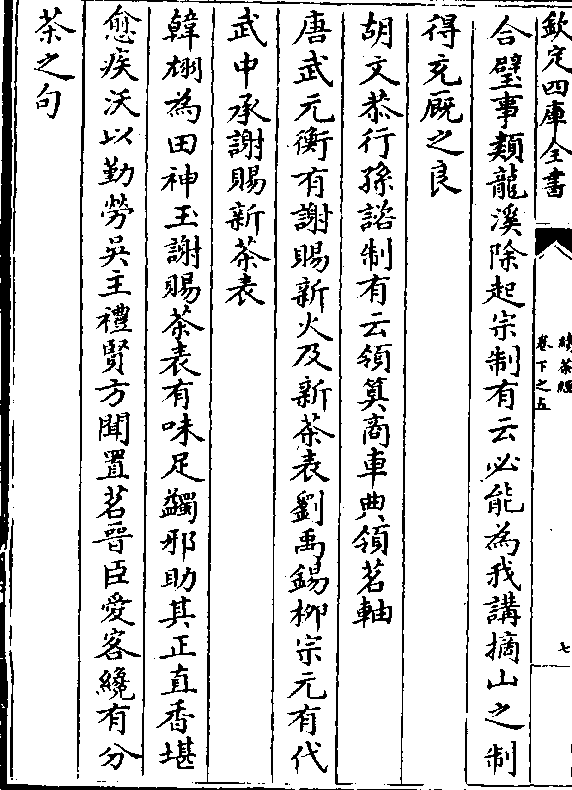 欽定四庫全書
續茶經
卷下之五
七
合璧事類龍溪除起宗制有云必能為我講摘山之制
得充厩之良
胡文恭行孫諮制有云領筭商車典領茗軸
唐武元衡有謝賜新火及新茶表劉禹錫栁宗元有代
武中丞謝賜新茶表
韓翃為田神玉謝賜茶表有味足蠲邪助其正直香堪
愈疾沃以勤勞吳主禮賢方聞置茗晉臣愛客纔有分
茶之句